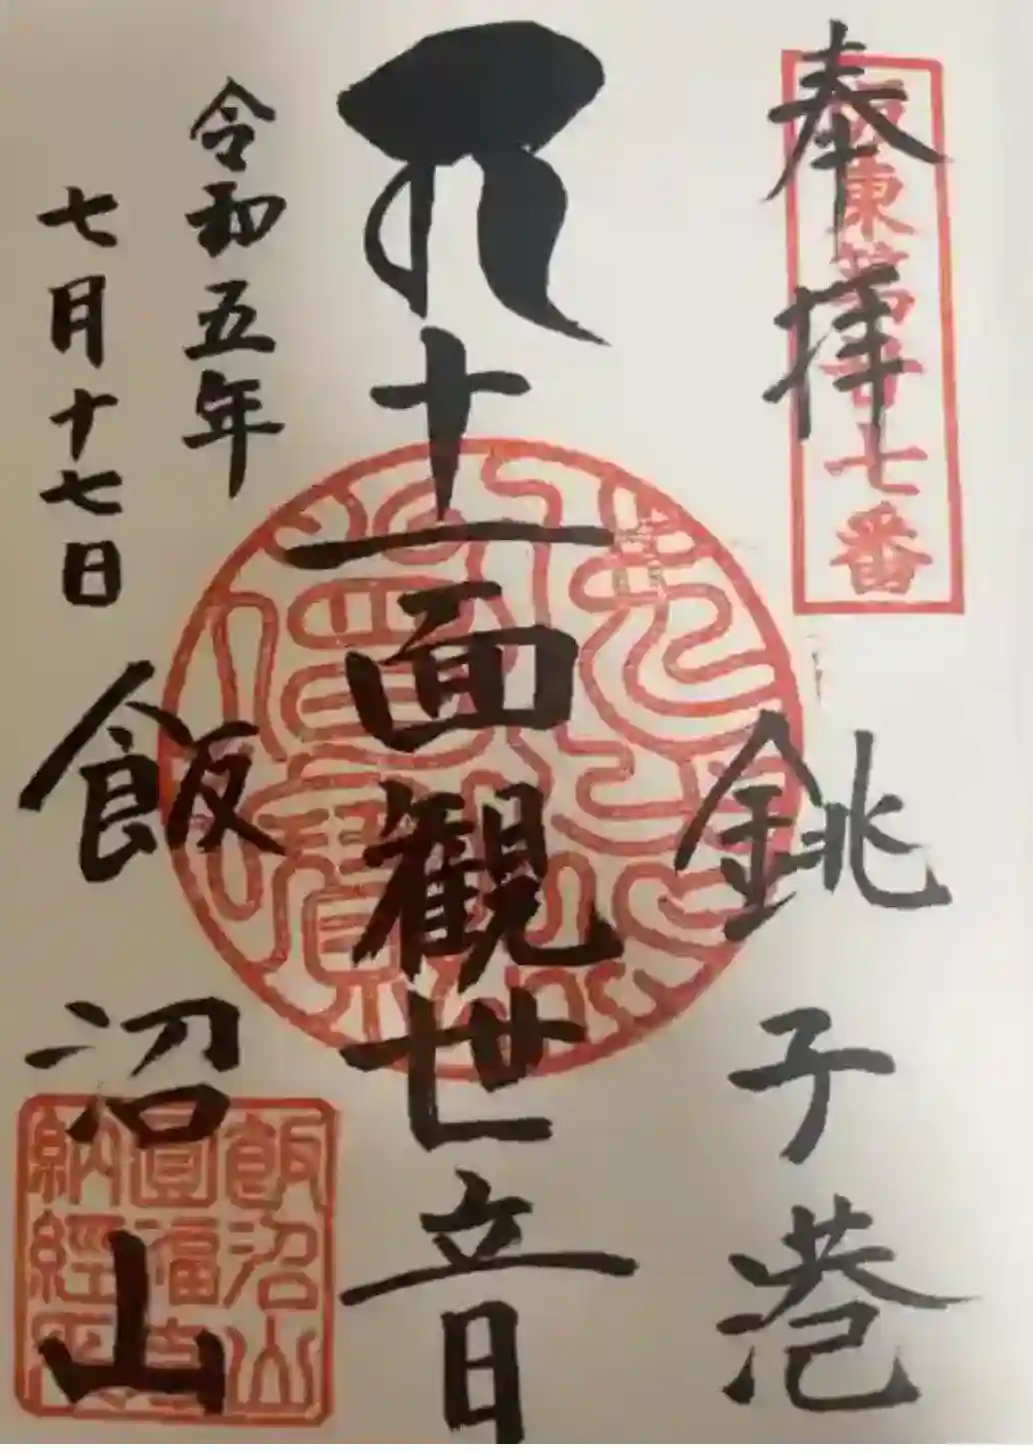 奉拝
坂東第廿七番
銚子港
十一面観世音
令和五年
七月十七日
飯沼山
飯沼山
圓福寺
納経所